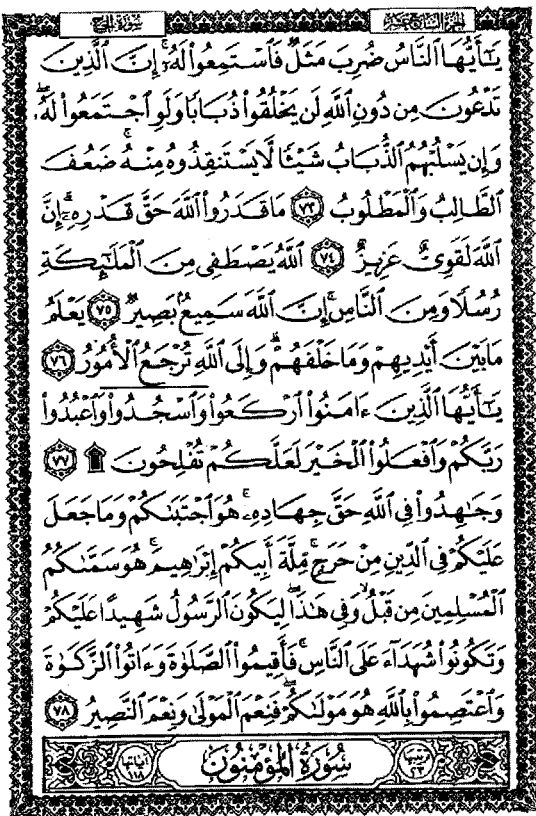 سُورَةُ الحَجّ الجُزْءُ السَّابِعَ عَشَرَ
يَٰٓأَيُّهَا ٱلنَّاسُ ضُرِبَ مَثَلٌ فَٱسْتَمِعُوا۟ لَهُۥٓ ۚ إِنَّ ٱلَّذِينَ
تَدْعُونَ مِن دُونِ ٱللَّهِ لَن يَخْلُقُوا۟ ذُبَابًا وَلَوِ ٱجْتَمَعُوا۟ لَهُۥ ۖ
وَإِن يَسْلُبْهُمُ ٱلذُّبَابُ شَيْـًٔا لَّا يَسْتَنقِذُوهُ مِنْهُ ۚ ضَعُفَ
ٱلطَّالِبُ وَٱلْمَطْلُوبُ ٧٣ مَا قَدَرُوا۟ ٱللَّهَ حَقَّ قَدْرِهِۦٓ ۗ إِنَّ
ٱللَّهَ لَقَوِىٌّ عَزِيزٌ ٧٤ ٱللَّهُ يَصْطَفِى مِنَ ٱلْمَلَٰٓئِكَةِ
رُسُلًا وَمِنَ ٱلنَّاسِ ۚ إِنَّ ٱللَّهَ سَمِيعٌۢ بَصِيرٌ ٧٥ يَعْلَمُ
مَا بَيْنَ أَيْدِيهِمْ وَمَا خَلْفَهُمْ ۗ وَإِلَى ٱللَّهِ تُرْجَعُ ٱلْأُمُورُ ٧٦
يَٰٓأَيُّهَا ٱلَّذِينَ ءَامَنُوا۟ ٱرْكَعُوا۟ وَٱسْجُدُوا۟ وَٱعْبُدُوا۟
رَبَّكُمْ وَٱفْعَلُوا۟ ٱلْخَيْرَ لَعَلَّكُمْ تُفْلِحُونَ ۩ ٧٧
وَجَٰهِدُوا۟ فِى ٱللَّهِ حَقَّ جِهَادِهِۦ ۚ هُوَ ٱجْتَبَىٰكُمْ وَمَا جَعَلَ
عَلَيْكُمْ فِى ٱلدِّينِ مِنْ حَرَجٍ ۚ مِّلَّةَ أَبِيكُمْ إِبْرَٰهِيمَ ۚ هُوَ سَمَّىٰكُمُ
ٱلْمُسْلِمِينَ مِن قَبْلُ وَفِى هَٰذَا لِيَكُونَ ٱلرَّسُولُ شَهِيدًا عَلَيْكُمْ
وَتَكُونُوا۟ شُهَدَآءَ عَلَى ٱلنَّاسِ ۚ فَأَقِيمُوا۟ ٱلصَّلَوٰةَ وَءَاتُوا۟ ٱلزَّكَوٰةَ
وَٱعْتَصِمُوا۟ بِٱللَّهِ هُوَ مَوْلَىٰكُمْ ۖ فَنِعْمَ ٱلْمَوْلَىٰ وَنِعْمَ ٱلنَّصِيرُ ٧٨
ترتيبها ٢٣ سُورَةُ المُؤْمِنُونَ آياتها ١١٨